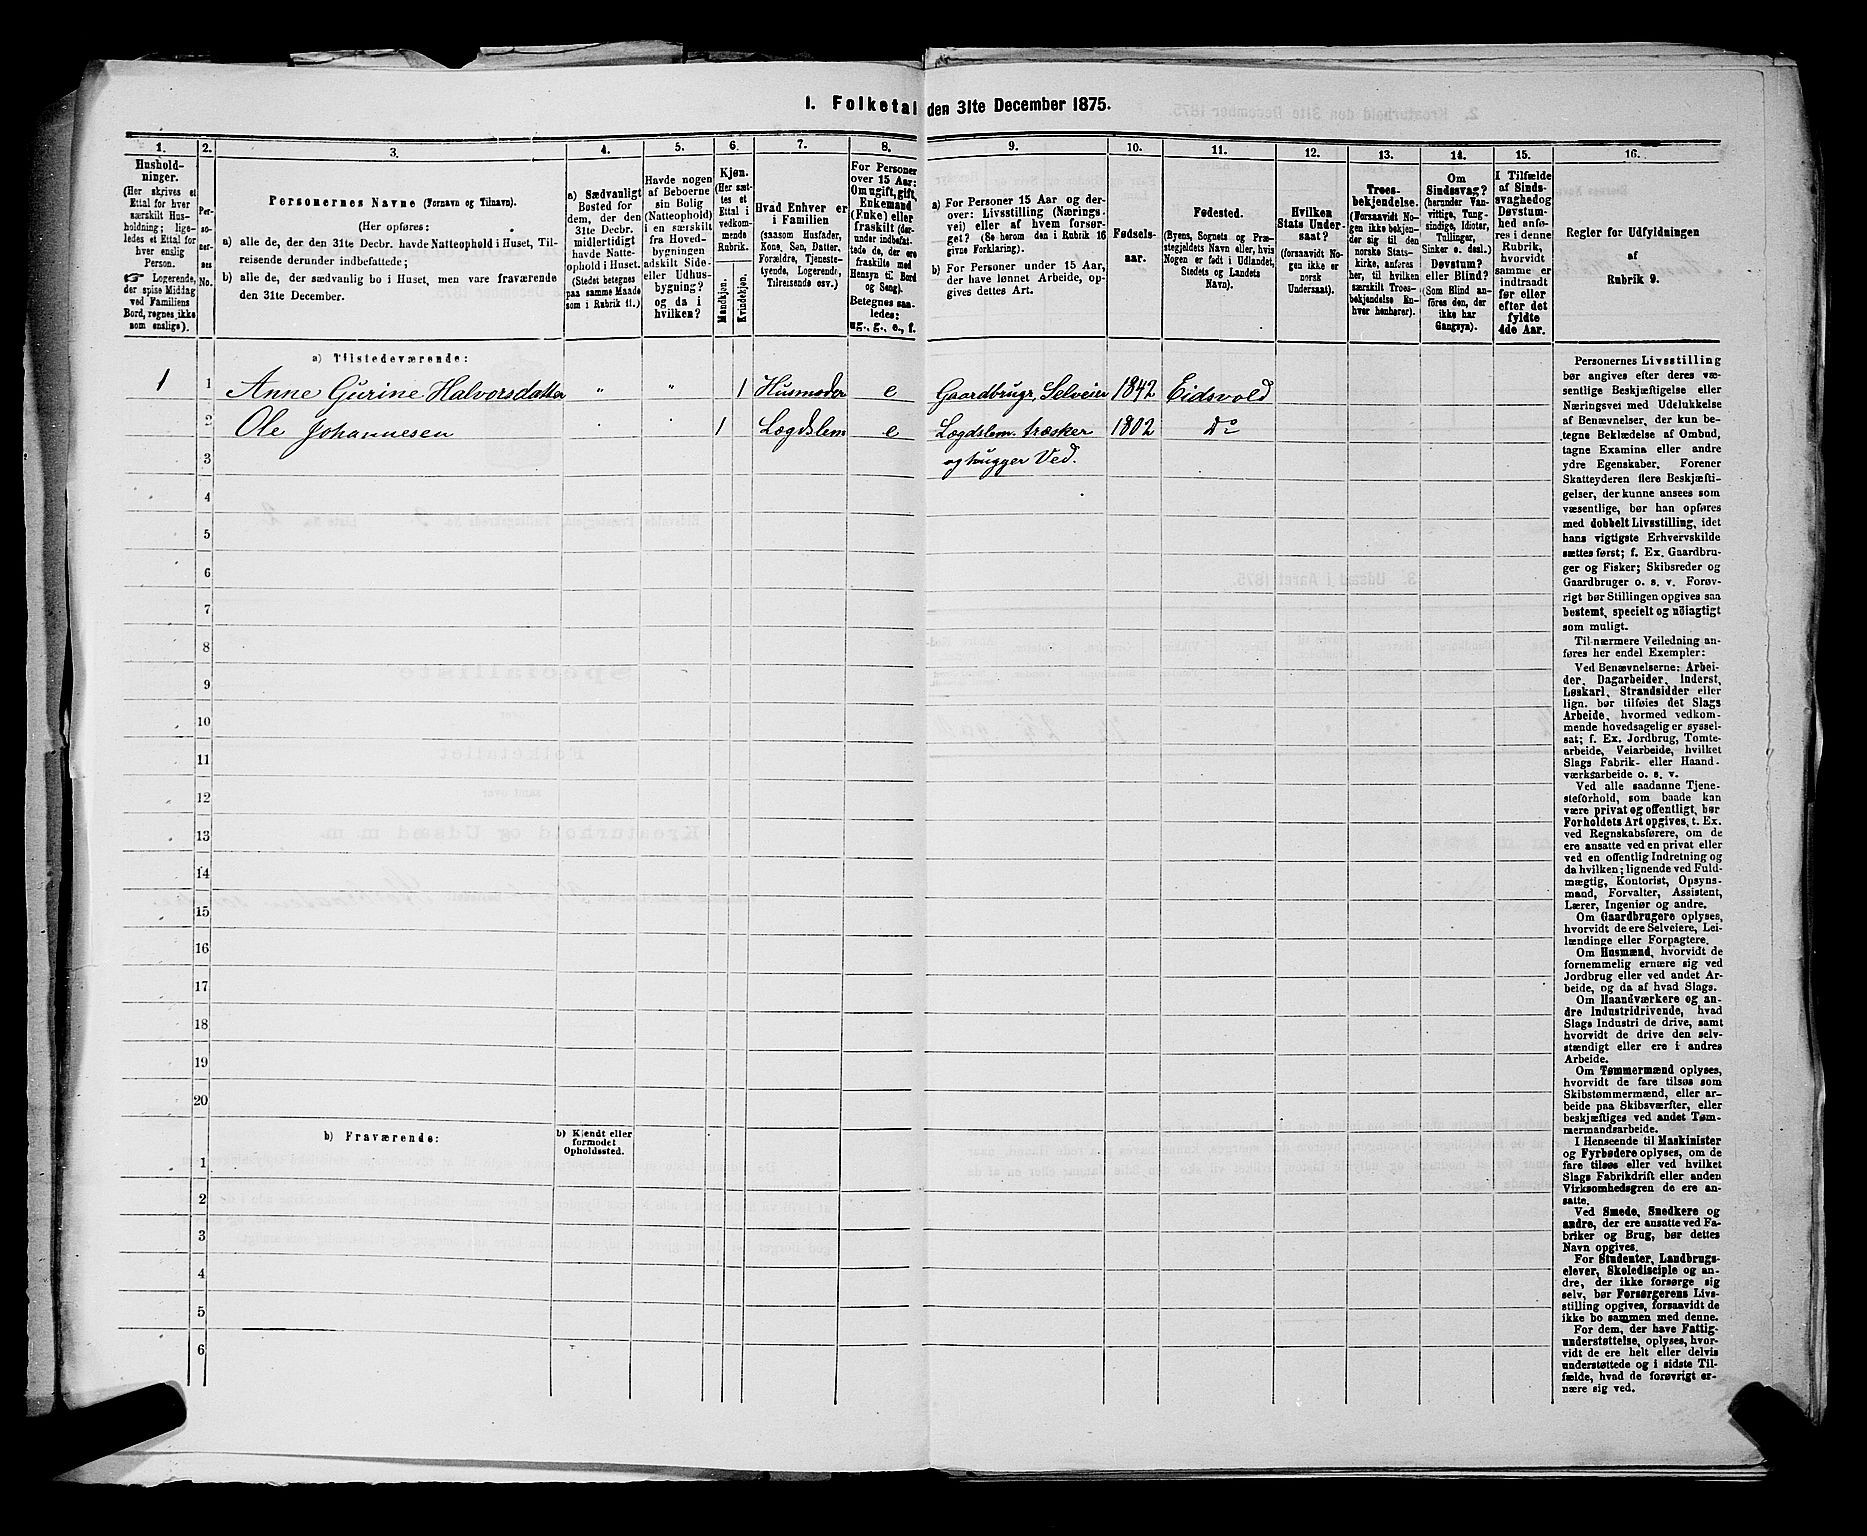 I. Folketal den 31te December 1875.
1.
2.
3.
4.
5.
6.
7.
8.
9.
10.
11.
12.
13.
14.
15.
16.
Hushold-
ninger.
(Her skrives et
Ettal for hver
særskilt Hus-
holdning; lige-
ledes et Ettal for
hver enslig
Person.
☞ Logerende,
der spise Middag
ved Familiens
Bord, regnes ikke
som enslige).
Per-
so-
ner-
nes
No.
Personernes Navne (Fornavn og Tilnavn).
(Her opføres:
a) alle de, der den 31te Decbr. havde Natteophold i Huset, Til-
reisende derunder indbefattede;
b) alle de, der sædvanlig bo i Huset, men vare fraværende
den 31te December.
a) Sædvanligt
Bosted for
dem, der den
31te Decbr.
midlertidigt
havde Natte-
ophold i Huset.
(Stedet betegnes
paa samme Maade
som i Rubrik 11.)
Havde nogen
af Beboerne
sin Bolig
(Natteophold)
i en særskilt
fra Hoved-
bygningen
adskilt Side-
eller Udhus-
bygning?
og da i
hvilken?
Kjøn.
(Her sæt-
tes et
Ettal i
vedkom-
mende
Rubrik.
Mandkjøn.
Kvindekjøn.
Hvad Enhver er
i Familien
(saasom Husfader,
Kone, Søn, Datter,
Forældre, Tjeneste-
tyende, Logerende,
Tilreisende osv.)
For Personer
over 15 Aar:
Om ugift, gift,
Enkemand
(Enke) eller
fraskilt (der-
under indbefat-
tede de, der ere
fraskilte med
Hensyn til Bord
og Seng).
Betegnes saa-
ledes:
ug., g., e., f.
a) For Personer 15 Aar og der-
over: Livsstilling (Nærings-
vei) eller af hvem forsør-
get? (Se herom den i Rubrik 16
givne Forklaring).
b) For Personer under 15 Aar,
der have lønnet Arbeide, op-
gives dettes Art.
Fødsels-
aar.
Fødested.
(Byens, Sognets og Præ-
stegjeldets Navn eller, hvis
Nogen er født i Udlandet,
Stedets og Landets
Navn).
Hvilken
Stats Under-
saat?
(forsaavidt No-
gen ikke er
norsk
Undersaat).
Troes-
bekjendelse.
(Forsaavidt No-
gen ikke bekjen-
der sig til den
norske Stats-
kirke, anføres
her, til hvilken
særskilt Troes-
bekjendelse En-
hver henhører).
Om
Sindssvag?
(herunder Van-
vittige, Tung-
sindige, Idioter,
Tullinger,
Sinker o. desl.)
Døvstum?
eller Blind?
(Som Blind an-
føres den, der
ikke har
Gangsyn).
I Tilfælde
af Sinds-
svaghed og
Døvstum-
hed anfø-
res i denne
Rubrik,
hvorvidt
samme er
indtraadt
før eller
efter det
fyldte
4de Aar.
Regler for Udfyldningen
af
Rubrik 9.
a) Tilstedeværende:
1 1 Anne Gurine Halvorsdatter " " 1 Husmoder e Gaardbrugr. Selveier 1842 Eidsvold
2 Ole Johannesen " " 1 Lægdslem e Lægdslem. træsker 1802 Do
3 og hugger Ved.
4
5
6
7
8
9
10
11
12
13
14
15
16
17
18
19
20
b) Fraværende:
b) Kjendt eller
formodet
Opholdssted.
1
2
3
4
5
6
Personernes Livsstilling
bør angives efter deres væ-
sentlige Beskjæftigelse eller
Næringsvei med Udelukkelse
af Benævnelser, der kun be-
tegne Beklædelse af Ombud,
tagne Examina eller andre
ydre Egenskaber. Forener
Skatteyderen flere Beskjæfti-
gelser, der kunne ansees som
væsentlige, bør han opføres
med dobbelt Livsstilling, idet
hans vigtigste Erhvervskilde
sættes først; f. Ex. Gaardbru-
ger og Fisker; Skibsreder og
Gaardbruger o. s. v. Forøv-
rigt bør Stillingen opgives saa
bestemt, specielt og nøiagtigt
som muligt.
Til nærmere Veiledning an-
føres her endel Exempler:
Ved Benævnelserne: Arbei-
der, Dagarbeider, Inderst,
Løskarl, Strandsidder eller
lign. bør tilføies det Slags
Arbeide, hvormed vedkom-
mende hovedsagelig er syssel-
sat; f. Ex. Jordbrug, Tomte-
arbeide, Veiarbeide, hvilket
Slags Fabrik- eller Haand-
værksarbeide o. s. v.
Ved alle saadanne Tjene-
steforhold, som baade kan
være privat og offentligt, bør
Forholdets Art opgives, t. Ex.
ved Regnskabsførere, om de
ere ansatte ved en privat eller
ved en offentlig Indretning og
da hvilken; lignende ved Fuld-
mægtig, Kontorist, Opsyns-
mand, Forvalter, Assistent,
Lærer, Ingeniør og andre.
Om Gaardbrugere oplyses,
hvorvidt de ere Selveiere, Lei-
lændinge eller Forpagtere.
Om Husmænd, hvorvidt de
fornemmelig ernære sig ved
Jordbrug eller ved andet Ar-
beide, og da af hvad Slags.
Om Haandværkere og an-
dre Industridrivende, hvad
Slags Industri de drive, samt
hvorvidt de drive den selv-
stændigt eller ere i andres
Arbeide.
Om Tømmermænd oplyses,
hvorvidt de fare tilsøs som
Skibstømmermænd, eller ar-
beide paa Skibsværfter, eller
beskjæftiges ved andet Tøm-
mermandsarbeide.
I Henseende til Maskinister
og Fyrbødere oplyses, om de
fare tilsøs eller ved hvilket
Slags Fabrikdrift eller anden
Virksomhedsgren de ere an-
satte.
Ved Smede, Snedkere og
andre, der ere ansatte ved Fa-
briker og Brug, bør dettes
Navn opgives.
For Studenter, Landbrugs-
elever, Skoledisciple og an-
dre, der ikke forsørge sig
selv, bør Forsørgerens Livs-
stilling opgives, forsaavidt de
ikke bo sammen med denne.
For dem, der have Fattig-
understøttelse, oplyses, hvor-
vidt de ere helt eller delvis
understøttede og i sidste Til-
fælde, hvad de forøvrigt er-
nære sig ved.